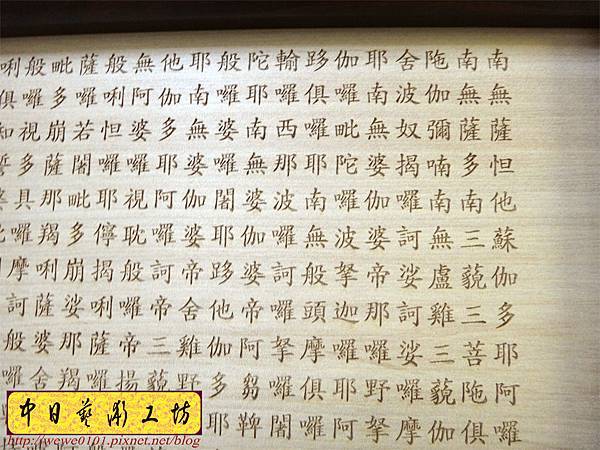 南無薩怛他蘇伽多耶阿囉
南無薩多南三藐三菩陁俱
陁伽彌喃南無盧雞三藐伽
舍波奴揭囉訶娑訶娑囉摩
耶南無婆伽婆帝那囉野拏
伽囉毗陀囉波拏迦囉耶阿
跢俱囉耶南無般頭摩俱囉
輪囉西那波囉訶囉拏囉闍
陀耶南無婆伽婆帝阿芻鞞
般囉婆囉闍耶跢他伽多耶
耶南無婆伽婆帝舍雞野
他伽多耶阿囉訶帝三藐
無阿婆囉視耽般囉帝揚
般唎怛囉耶儜揭唎薩囉
薩囉若闍毗多崩娑那羯
毗多薩那羯唎薩婆舍
般囉視多具囉摩訶般囉
中日藝術工坊
http://wewe0101.pixnet.net/blog